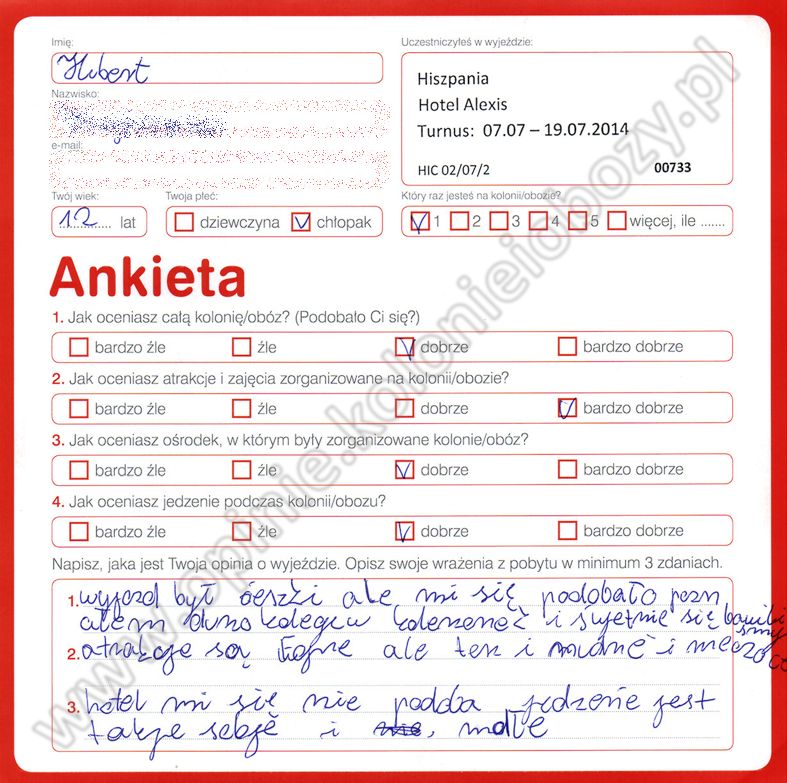 Imię:
Hubert
Nazwisko:
e-mail:
Twój wiek:
12 lat
Twoja płeć:
dziewczyna V chłopak
Uczestniczyłeś w wyjeździe:
Hiszpania
Hotel Alexis
Turnus: 07.07 – 19.07.2014
HIC 02/07/2 00733
Który raz jesteś na kolonii/obozie?
V 1 2 3 4 5 więcej, ile .......
Ankieta
1. Jak oceniasz całą kolonię/obóz? (Podobało Ci się?)
bardzo źle źle V dobrze bardzo dobrze
2. Jak oceniasz atrakcje i zajęcia zorganizowane na kolonii/obozie?
bardzo źle źle dobrze V bardzo dobrze
3. Jak oceniasz ośrodek, w którym były zorganizowane kolonie/obóz?
bardzo źle źle V dobrze bardzo dobrze
4. Jak oceniasz jedzenie podczas kolonii/obozu?
bardzo źle źle V dobrze bardzo dobrze
Napisz, jaka jest Twoja opinia o wyjeździe. Opisz swoje wrażenia z pobytu w minimum 3 zdaniach.
1. wyjazd był ale mi się podobało pozn
ałem kolegów i się bawili
śmy
2. atrakcje są fajne ale też i nudne i
3. hotel mi się nie podoba jedzenie jest
takie sobie i małe
www.opinie.kolonieiobozy.pl